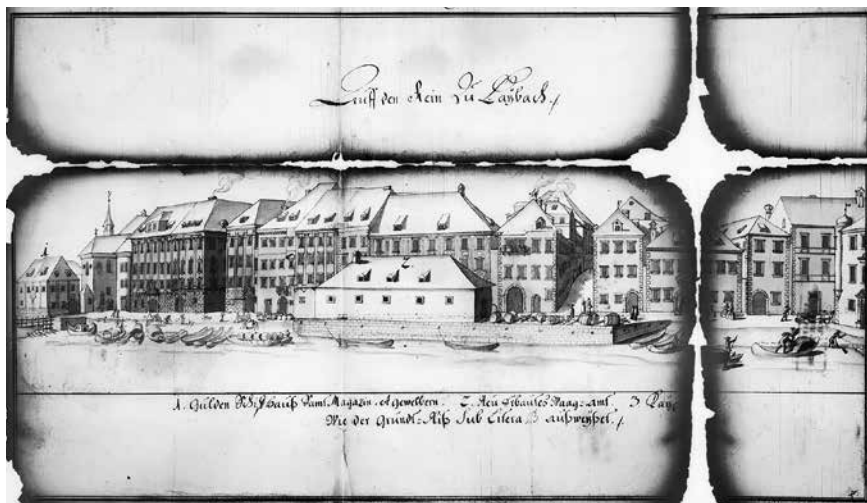 Auff den Rein Zu Laybach./
1. Gulden Schif Hauß Samt Magazin. et Gewelbern. 2. Neu Gbautes Waag-amt. 3
Wie der Grundt-Riß Sub Litera B außweyset./